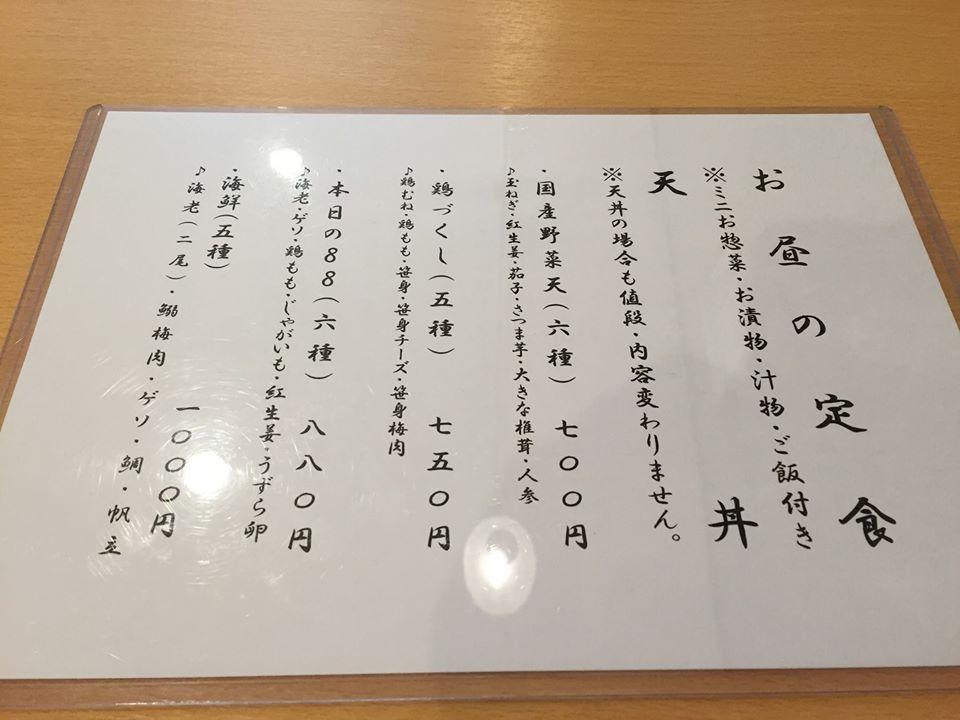 お昼の定食
※ミニお惣菜・お漬物・汁物・ご飯付き
天丼
※天丼の場合も値段・内容変わりません。
・国産野菜天(六種) 七〇〇円
♪玉ねぎ・紅生姜・茄子・さつま芋・大きな椎茸・人参
・鶏づくし(五種) 七五〇円
♪鶏むね・鶏もも・笹身・笹身チーズ・笹身梅肉
・本日の88(六種) 八八〇円
♪海老・ゲソ・鶏もも・じゃがいも・紅生姜・うずら卵
・海鮮(五種) 一〇〇〇円
♪海老(二尾)・鰯梅肉・ゲソ・鯛・帆立